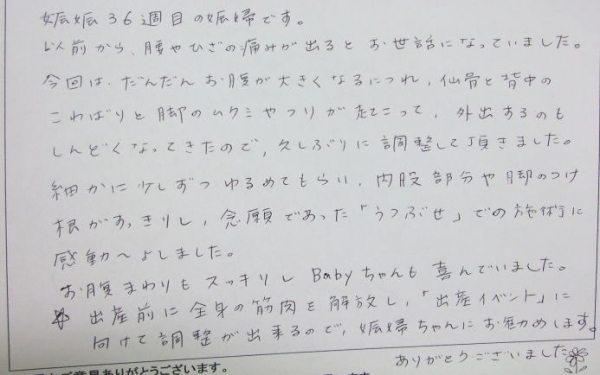 妊娠36週目の妊婦です。
以前から、腰やひざの痛みが出るとお世話になっていました。
今回は、だんだんお腹が大きくなるにつれ、仙骨と背中の
こわばりと脚のムクミやつりが起こって、外出するのも
しんどくなってきたので、久しぶりに調整して頂きました。
細かに少しずつゆるめてもらい、内股部分や脚のつけ
根がすっきりし、念願であった「うつぶせ」での施術に
感動〜♪しました。
お腹まわりもスッキリしBabyちゃんも喜んでいました。
☆出産前に全身の筋肉を解放し、「出産イベント」に
向けて調整が出来るので、妊婦ちゃんにお勧めします。
ありがとうございました
ご意見ありがとうございます。